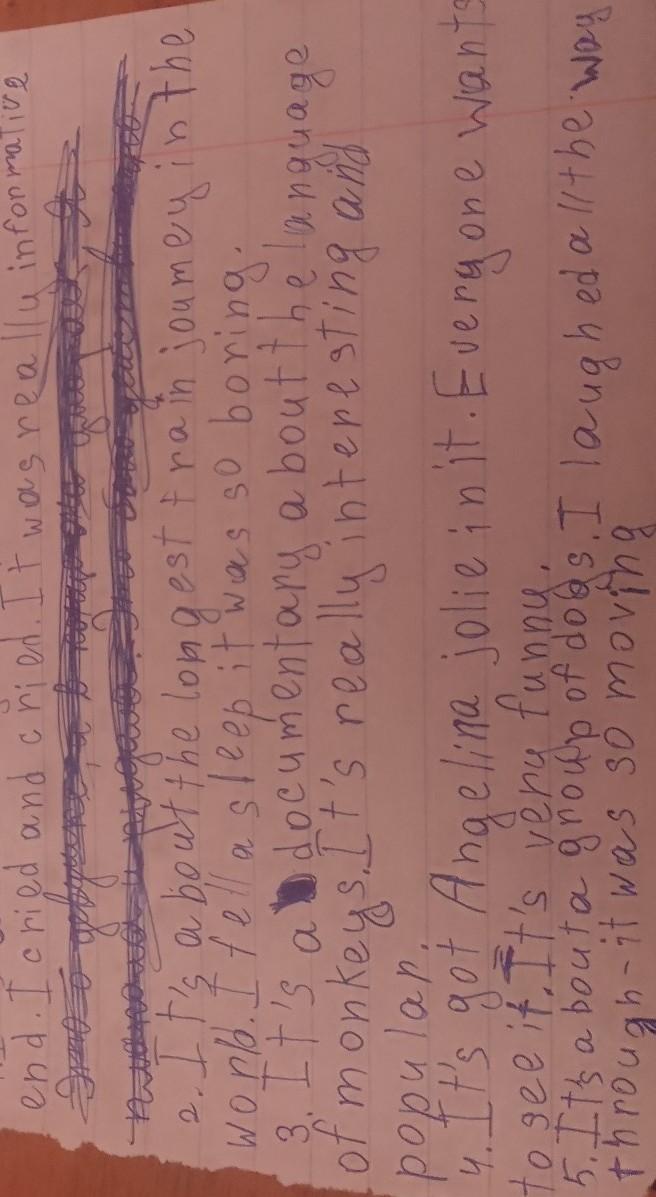 end. I cried and cried. It was really informative
2. It's about the longest train journey in the
world. I fell asleep it was so boring.
3. It's a documentary about the language
of monkeys. It's really interesting and
popular.
4. It's got Angelina jolie in it. Everyone wants
to see it. It's very funny.
5. It's about a group of dogs. I laughed all the way
through - it was so moving